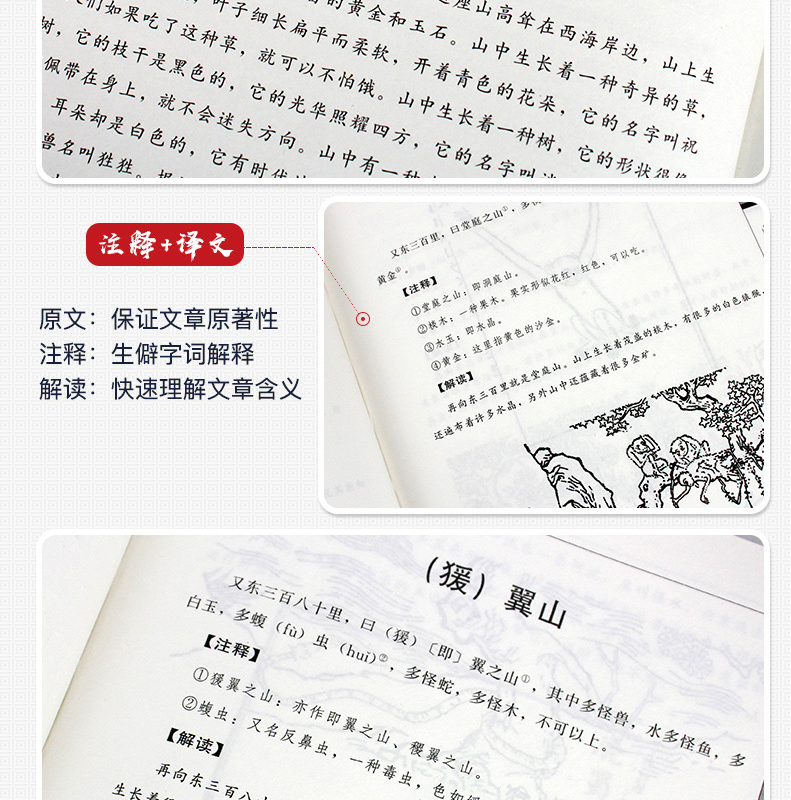 这座山高耸在西海岸边，山上生
的黄金和玉石。山中生长着一种奇异的草，
叶子细长扁平而柔软，开着青色的花朵，它的名字叫祝
们如果吃了这种草，就可以不怕饿。山中生长着一种树，它的形状很像
树，它的枝干是黑色的，它的光华照耀四方，它的名字叫迷
佩带在身上，就不会迷失方向。山中有一种
耳朵却是白色的，它有时
兽名叫狌狌。
注释+译文
原文：保证文章原著性
注释：生僻字词解释
解读：快速理解文章含义
又东三百里，曰堂庭之山①，多
黄金④。
【注释】
①堂庭之山：即洞庭山。
②棪木：一种果木。果实形似花红，红色，可以吃。
③水玉：即水晶。
④黄金：这里指黄色的沙金。
【解读】
再向东三百里就是堂庭山。山上生长着茂盛的棪木，有很多的白色猿猴，
还遍布着许多水晶，另外山中还蕴藏着很多金矿。
（猨）翼山
又东三百八十里，曰（猨）〔即〕翼之山①，其中多怪兽，水多怪鱼，多
白玉，多蝮（fù）虫（huǐ）②，多怪蛇，多怪木，不可以上。
【注释】
①猨翼之山：亦作即翼之山、稷翼之山。
②蝮虫：又名反鼻虫，一种毒虫，色如绶
【解读】
再向东三百八
生长着